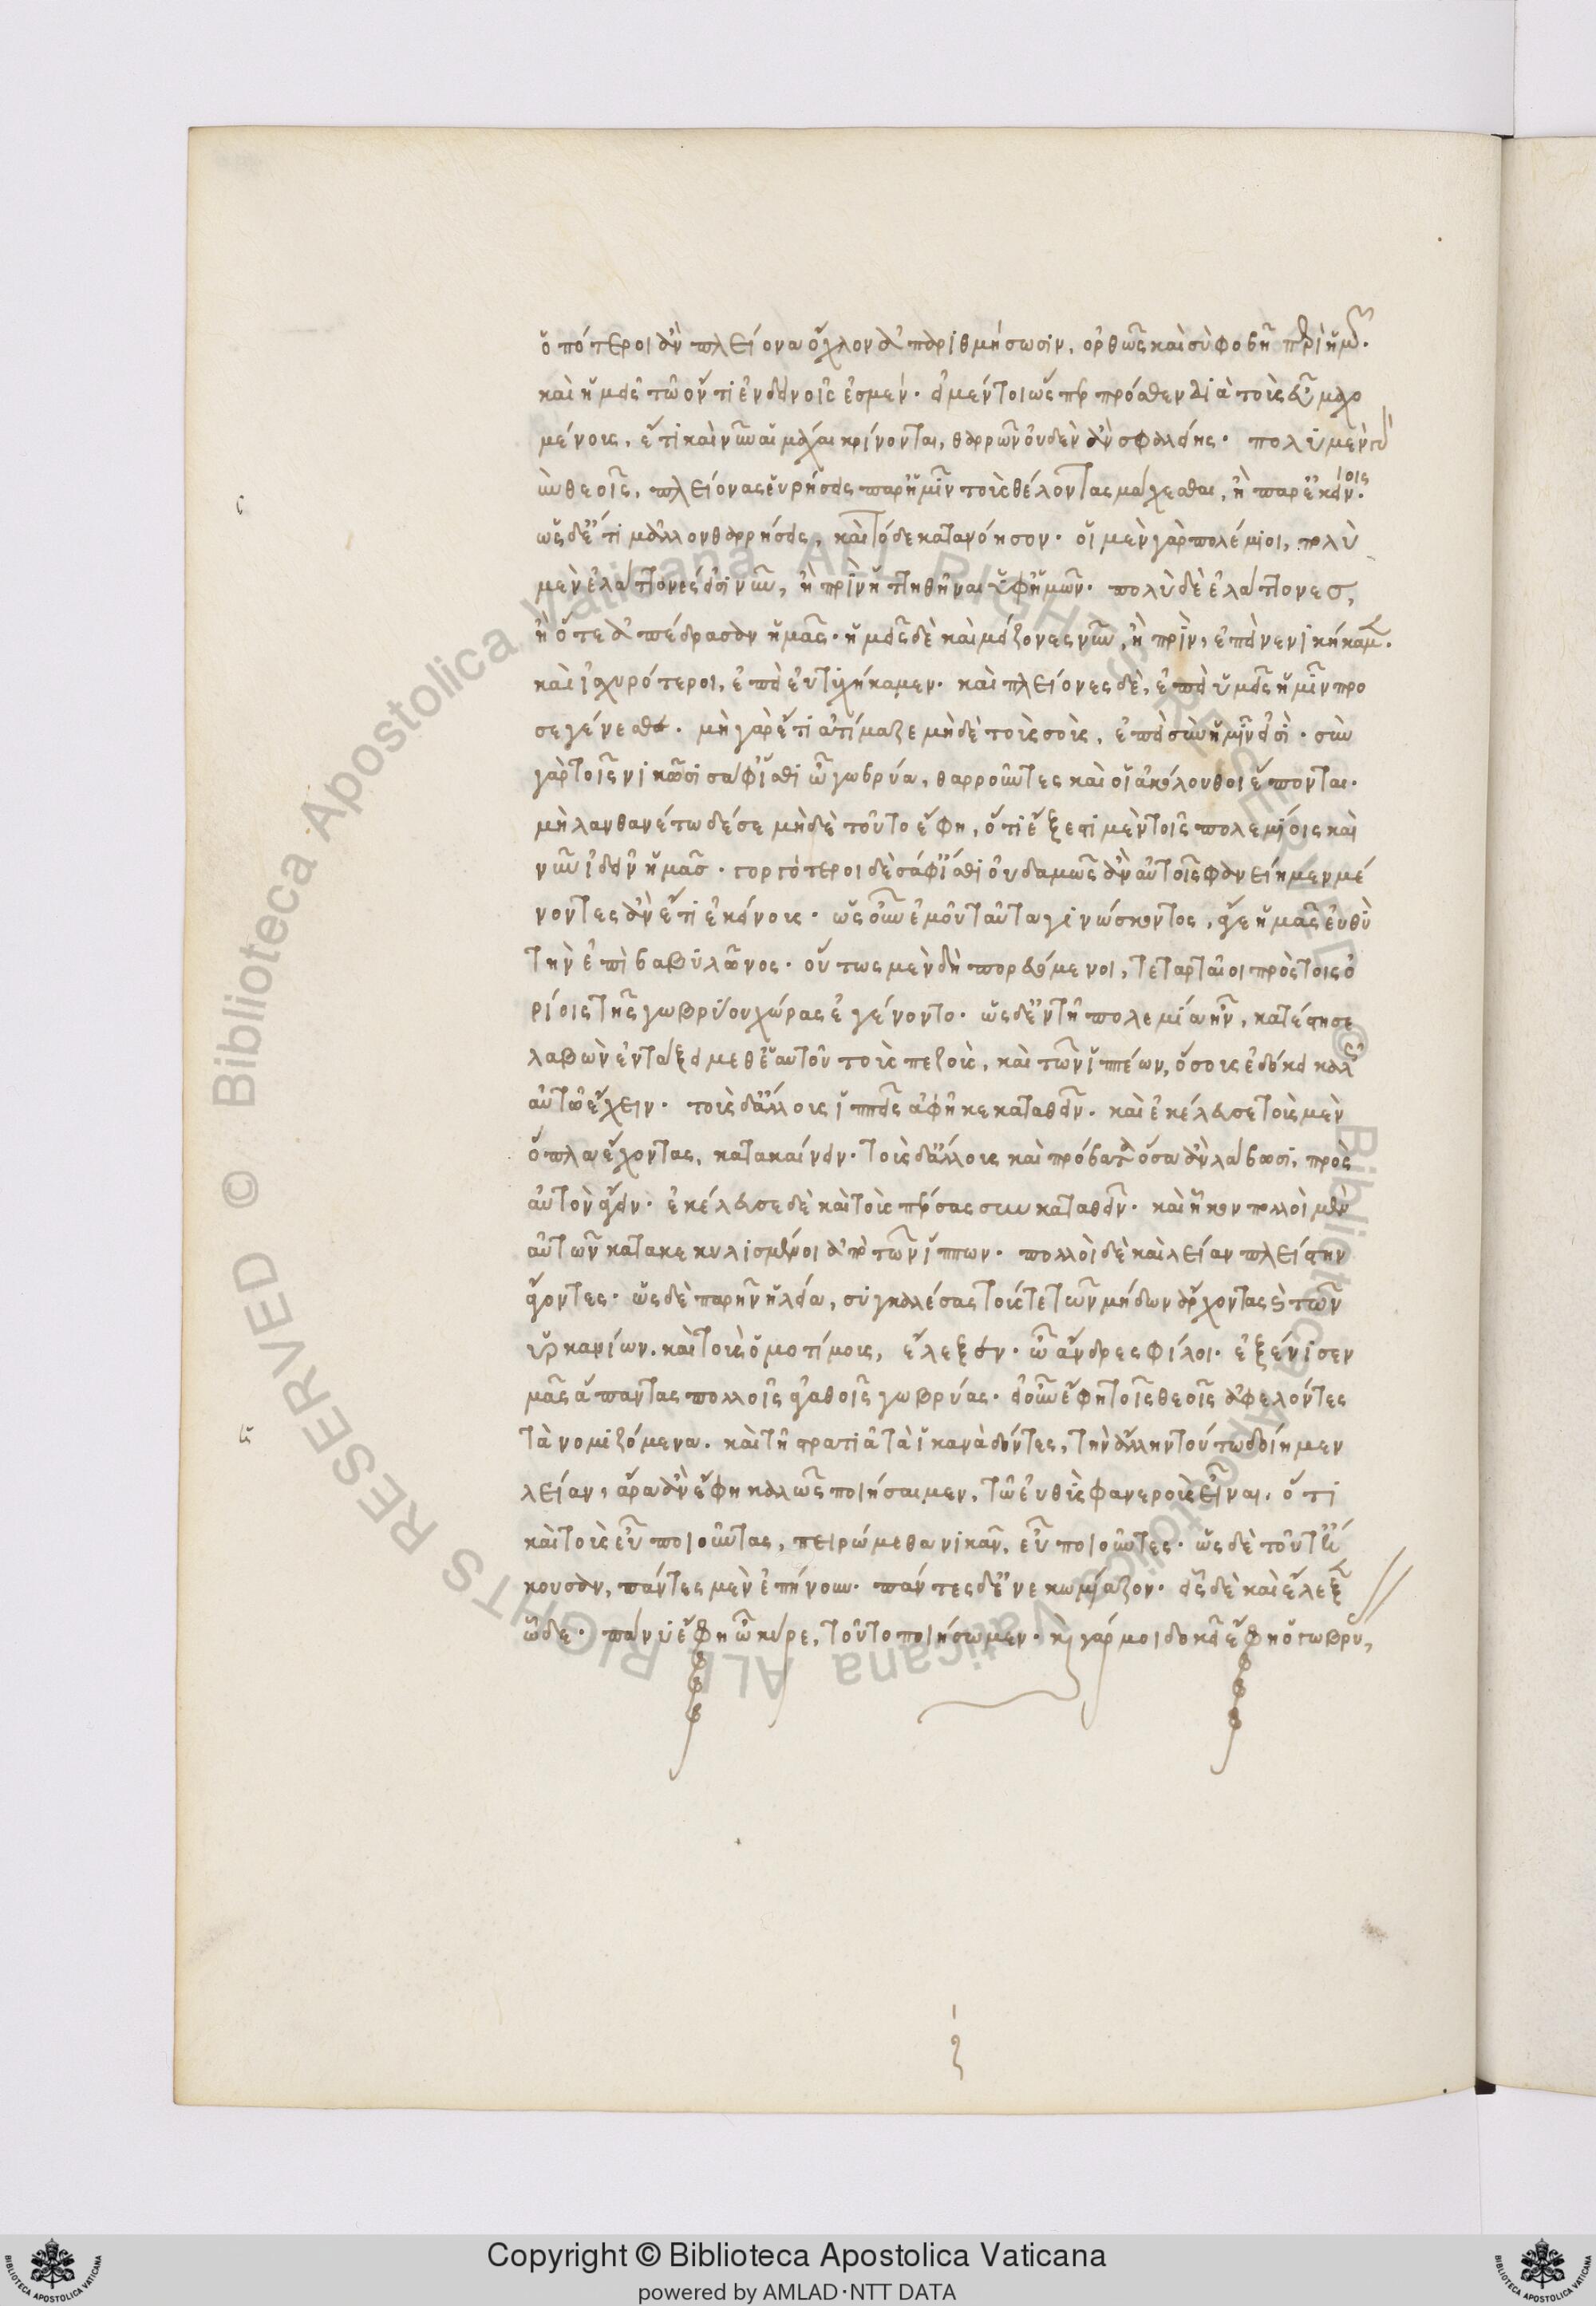 ὁπότεροι ἂν πλείονα ὄχλον ἀπαριθμήσωσιν, ὀρθῶς καὶ σὺ φοβῇ περὶ ἡμῶν.
καὶ ἡμεῖς τῶ ὄντι ἐν δεινοῖς ἐσμέν· εἰ μέντοι ὥσπερ πρόσθεν διὰ τοὺς εὖ μαχο
μένους, ἔτι καὶ νῦν αἱ μάχαι κρίνονται, θαρρῶν οὐδὲν ἂν σφαλείης· πολὺ μὲν σ
ὺν θεοῖς, πλείονας εὑρήσεις παρ' ἡμῖν τοὺς θέλοντας μάχεσθαι, ἢ παρ' ἐκείνοις.
ὡς δ' ἔτι μᾶλλον θαρρήσεις, καὶ τόδε κατανόησον· οἱ μὲν γὰρ πολέμιοι, πολὺ
μὲν ἐλάττονές εἰσι νῦν, ἢ πρὶν ἡττηθῆναι ὑφ' ἡμῶν· πολὺ δὲ ἐλάττονες,
ἢ ὅτε ἀπέδρασαν ἡμᾶς· ἡμεῖς δὲ καὶ μείζονες νῦν, ἢ πρὶν, ἐπεὶ νενικήκαμεν.
καὶ ἰσχυρότεροι, ἐπεὶ εὐτυχήκαμεν· καὶ πλείονες δὲ, ἐπεὶ ὑμεῖς ἡμῖν προ
σεγένεσθε. μὴ γὰρ ἔτι ἀτίμαζε μηδὲ τοὺς σοὺς, ἐπεὶ σὺν ἡμῖν εἰσὶ· σὺν
γὰρ τοῖς νικῶσι σάφ' ἴσθι ὦ γωβρύα, θαρροῦντες καὶ οἱ ἀκόλουθοι ἕπονται.
μὴ λανθανέτω δέ σε μηδὲ τοῦτο ἔφη, ὅτι ἔξεστι μὲν τοῖς πολεμίοις καὶ
νῦν ἰδεῖν ἡμᾶς· γοργότεροι δὲ σάφ' ἴσθι οὐδαμῶς ἂν αὐτοῖς φανείημεν μέ
νοντες ἂν ἔτι ἐκείνοις· ὡς οὖν ἐμοῦ ταῦτα γινώσκοντος, ἄγε ἡμᾶς εὐθὺ
τὴν ἐπὶ βαβυλῶνος· οὕτως μὲν δὴ πορευόμενοι, τεταρταῖοι πρὸς τοῖς ὁ
ρίοις τῆς γωβρύου χώρας ἐγένοντο· ὡς δ' ἐν τῇ πολεμία ἦν, κατέστησε
λαβὼν ἐν τάξει μεθ' ἑαυτοῦ τοὺς πεζοὺς, καὶ τῶν ἱππέων, ὅσους ἐδόκει καλῶς
αὐτῶ ἔχειν· τοὺς δ' ἄλλους ἱππεῖς ἀφῆκε καταθεῖν. καὶ ἐκέλευσε τοὺς μὲν
ὅπλα ἔχοντας, κατακαίνειν· τοὺς δ' ἄλλους καὶ πρόβατα ὅσα ἂν λάβωσι, πρὸς
αὐτὸν ἄγειν· ἐκέλευσε δὲ καὶ τοὺς πέρσας συγκαταθεῖν· καὶ ἧκον πολλοὶ μὲν
αὐτῶν κατακεκυλισμένοι ἀπὸ τῶν ἵππων· πολλοὶ δὲ καὶ λείαν πλείστην
ἄγοντες· ὡς δὲ παρῆν ἡ λεία, συγκαλέσας τούς τε τῶν μήδων ἄρχοντας καὶ τῶν
ὑρκανίων. καὶ τοὺς ὁμοτίμους, ἔλεξεν· ὦ ἄνδρες φίλοι· ἐξένισεν
μᾶς ἅπαντας πολλοῖς ἀγαθοῖς γωβρύας· εἰ οὖν ἔφη τοῖς θεοῖς ἀφελόντες
τὰ νομιζόμενα. καὶ τῇ στρατιᾶ τὰ ἱκανὰ δόντες, τὴν ἄλλην τούτω δοίημεν
λείαν, ἆρα ἂν ἔφη καλῶς ποιήσαιμεν, τῶ εὐθὺς φανεροὺς εἶναι. ὅτι
καὶ τοὺς εὖ ποιοῦντας, πειρώμεθα νικᾶν, εὖ ποιοῦντες· ὡς δὲ τοῦτ' ἤ
κουσαν, πάντες μὲν ἐπήνουν. πάντες δ' ἐνεκωμίαζον· εἷς δὲ καὶ ἔλεξεν
ὧδε· πάνυ ἔφη ὦ κύρε, τοῦτο ποιήσωμεν· καὶ γάρ μοι δοκεῖ ἔφη ὁ γωβρύ,
© Biblioteca Apostolica Vaticana ALL RIGHTS RESERVED © Biblioteca Apostolica Vaticana ALL RIGHTS RESERVED
Copyright © Biblioteca Apostolica Vaticana
powered by AMLAD·NTT DATA
BIBLIOTECA APOSTOLICA VATICANA
BIBLIOTECA APOSTOLICA VATICANA